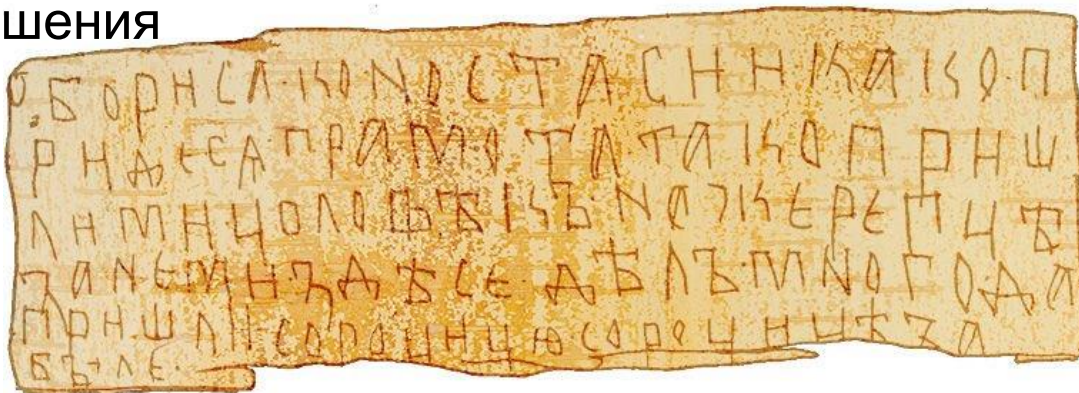 шения
ѿ БОРИСА·КО·НОСТАСИИ·КАКО·П
РИДЕСАГРАМОТАТАКОПРИШ
ЛИМИЦОЛОВѢКЪ·НАЖЕРЕПЦѢ
ЗАНЕМИЗДѢСЕ·ДѢЛЪ·МНОГО·ДА
ПРИШЛИСОРОЦИЦЮСОРОЦИЦѢЗА
БЪІЛЕ·